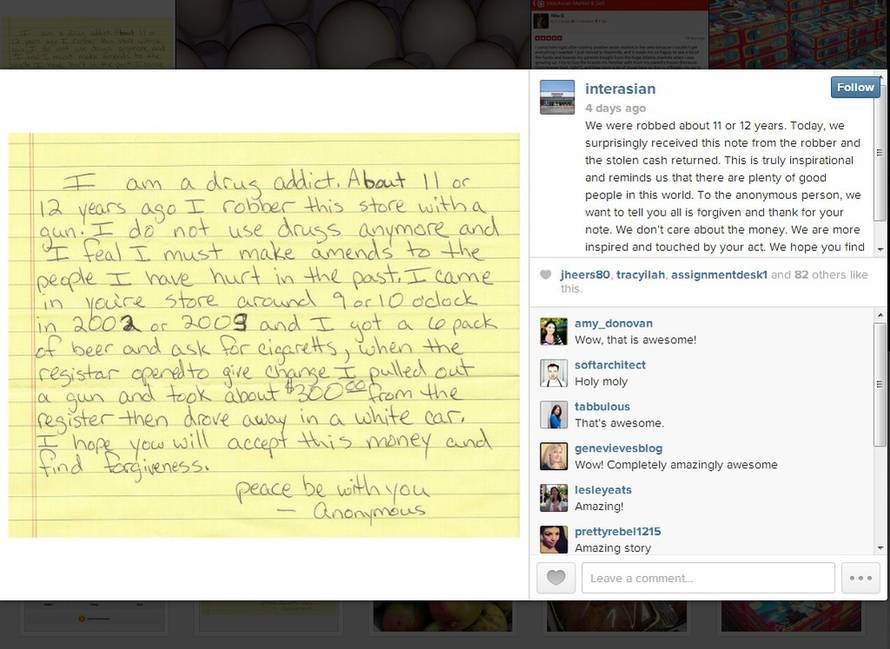 I am a drug addict. About 11 or
12 years ago I robber this store with a
gun. I do not use drugs anymore and
I feal I must make amends to the
people I have hurt in the past. I came
in you're store around 9 or 10 oclock
in 2002 or 2003 and I got a 6 pack
of beer and ask for cigaretts, when the
registar opened to give change I pulled out
a gun and took about $300.00 from the
register then drove away in a white car.
I hope you will accept this money and
find forgiveness.
peace be with you
— Anonymous
interasian
Follow
4 days ago
We were robbed about 11 or 12 years. Today, we
surprisingly received this note from the robber and
the stolen cash returned. This is truly inspirational
and reminds us that there are plenty of good
people in this world. To the anonymous person, we
want to tell you all is forgiven and thank for your
note. We don't care about the money. We are more
inspired and touched by your act. We hope you find
jheers80, tracyilah, assignmentdesk1 and 82 others like
this.
amy_donovan
Wow, that is awesome!
softarchitect
Holy moly
tabbulous
That's awesome.
genevievesblog
Wow! Completely amazingly awesome
lesleyeats
Amazing!
prettyrebel1215
Amazing story
Leave a comment...